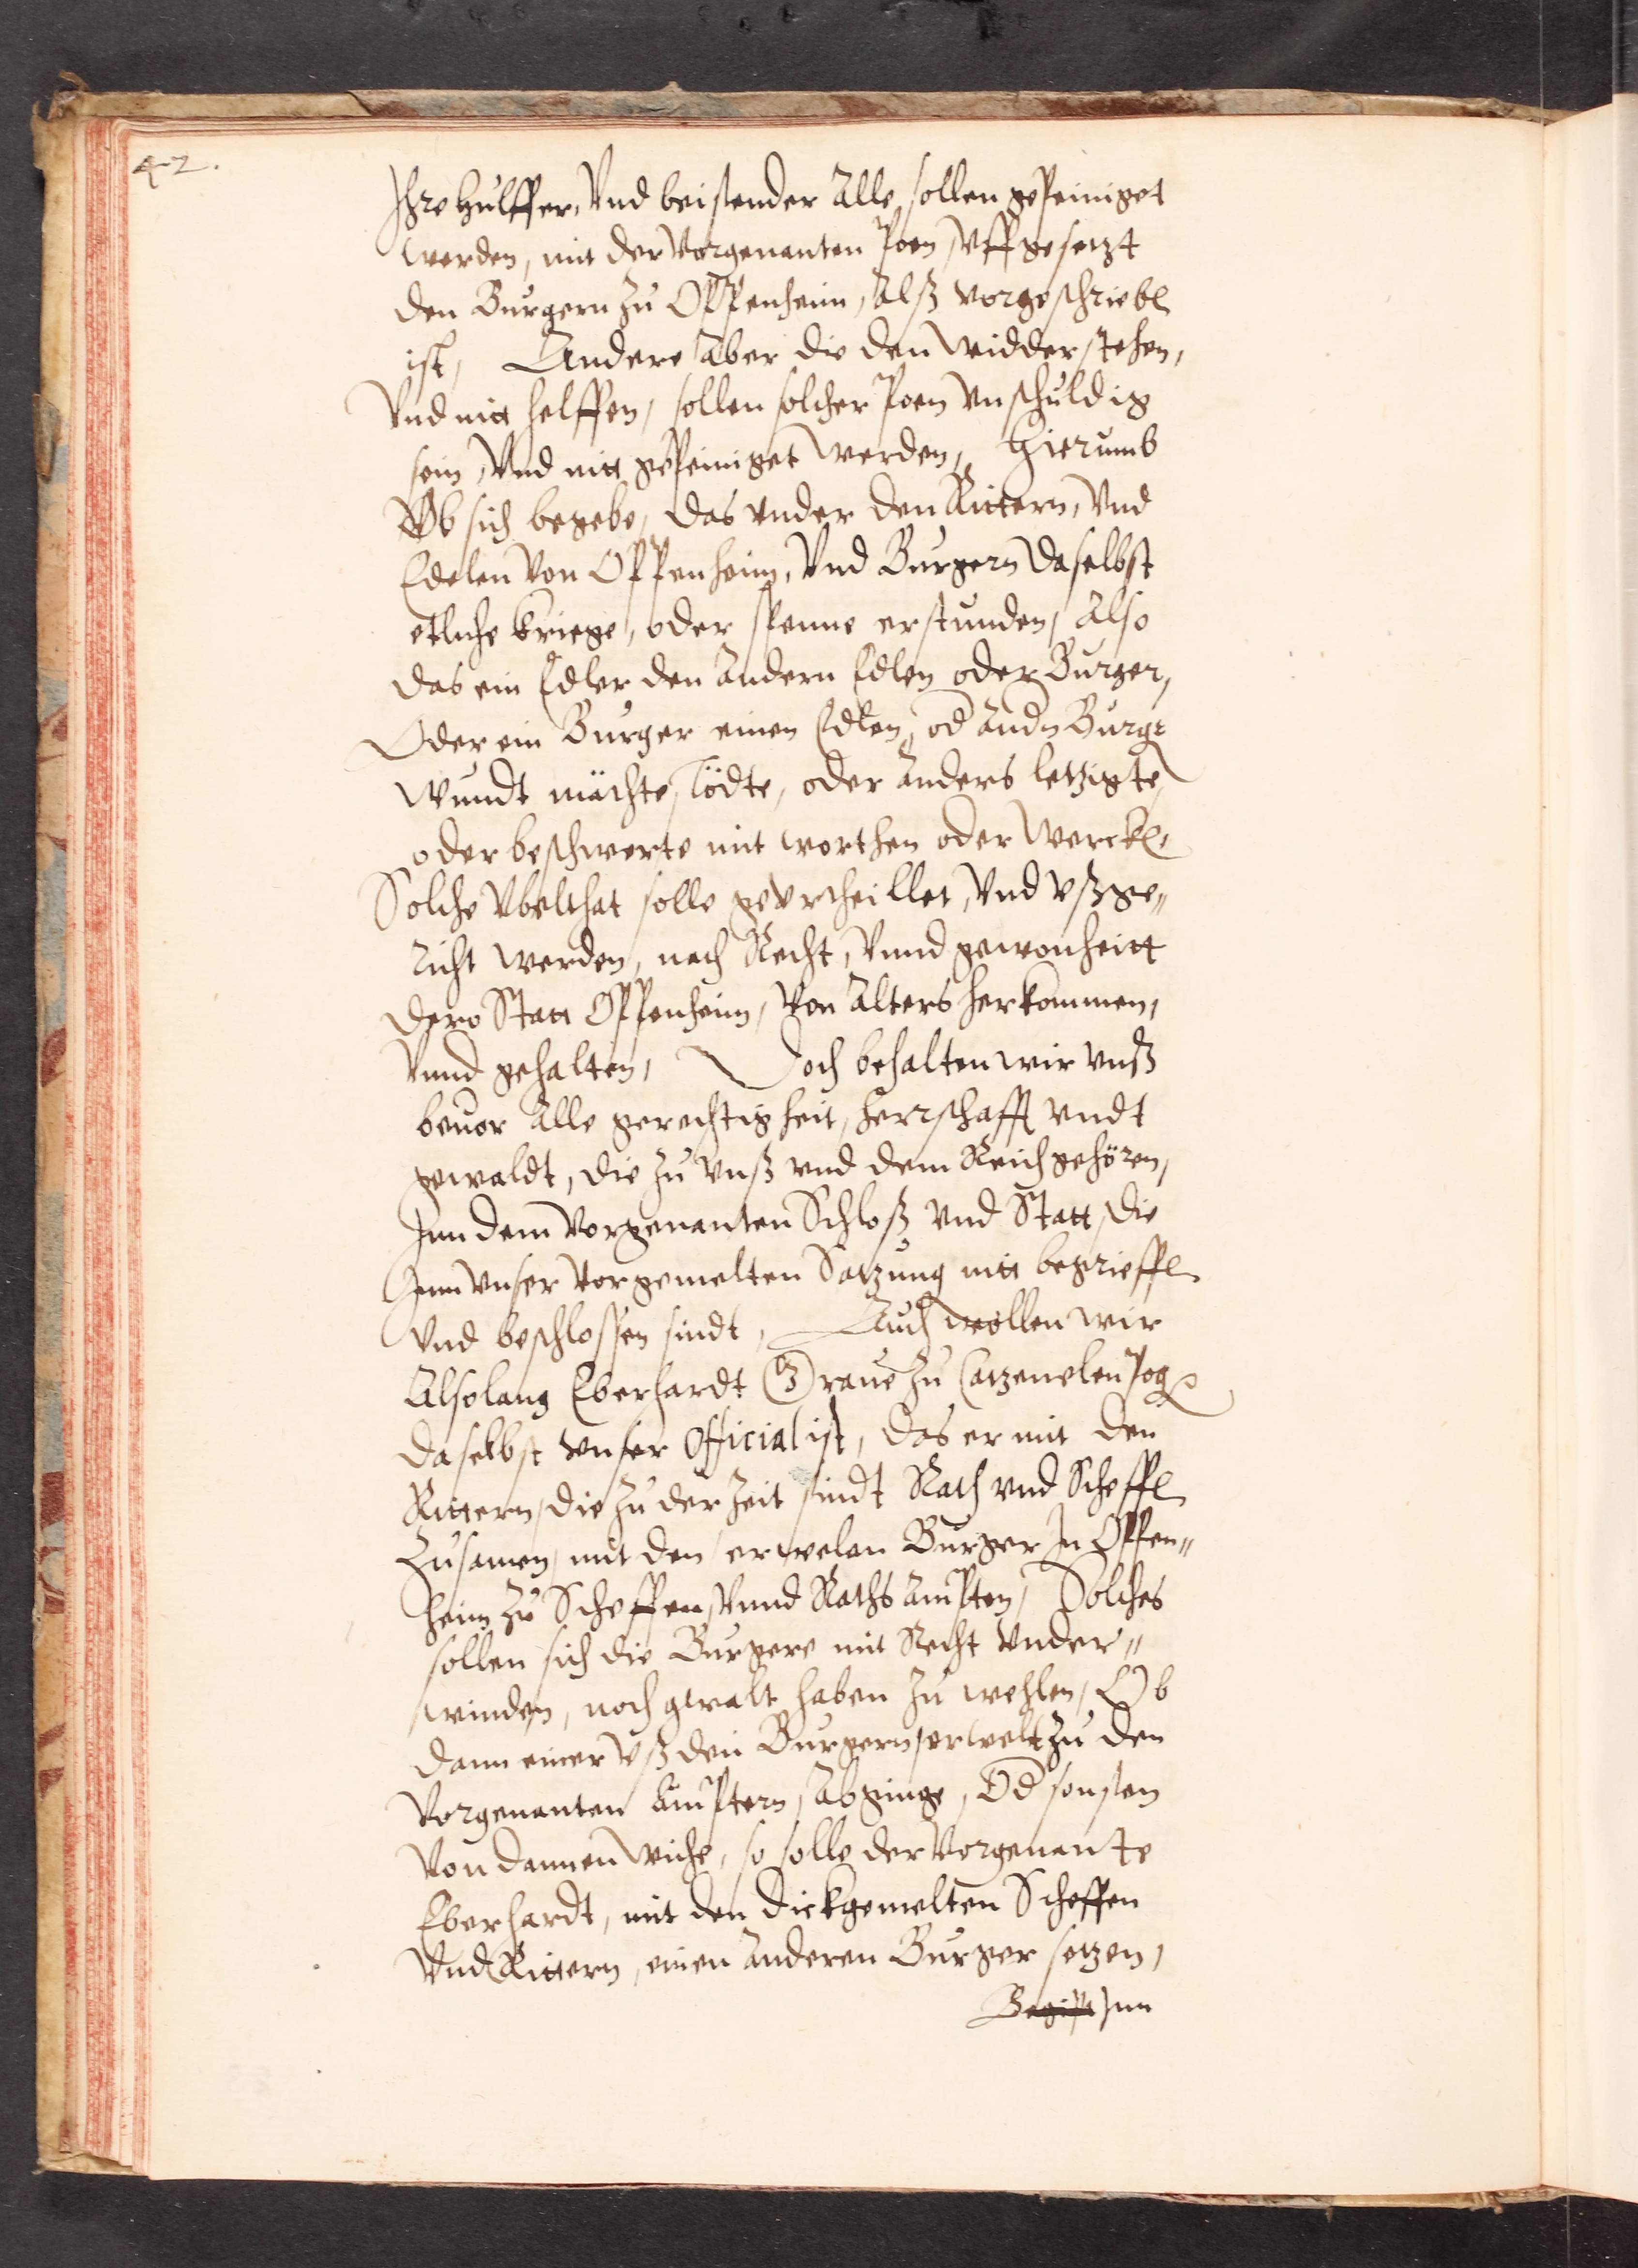 42.
Ihre hülffer, Vnd beistender Alle sollen gepeiniget
werden, mit der Vorgenanten Poen, Vffgesetzt
den Burgern zu Oppenheim, Alß vorgeschrieben
ist, Andere Aber die den widderstehen,
Vnd nitt helffen, sollen solcher Poen vnschuldig
sein, Vnd nitt gepeiniget werden, Hierumb
Ob sich begebe, das vnder den Rittern, Vnd
Edelen Von Oppenheim, Vnd Burgern daselbst
etliche kriege, oder spenne erstunden, Also
das ein Edler den Andern Edlen oder Burger,
Oder ein Burger einen Edlen, od Andn Burger
Wundt mächte, Tödte, oder Anders letzigte,
oder beschwerte mit worthen oder wercken,
Solche Vbelthat solle geurtheillet, Vnd vßge„
richt werden, nach Recht, Vnnd gewonheitt
dero Statt Oppenheim, Von Alters herkommen,
Vnnd gehalten, Doch behalten wir vnß
beuor Alle gerechtigkeit, herrschafft vndt
gewaldt, die zu vnß vnd dem Reich gehören,
Inn dem Vorgenanten Schloß vnd Statt, die
Inn vnser vorgemelten Satzung nitt begrieffen
Vnd beschlossen sindt, Auch wöllen wir
Alsolang Eberhardt Graue zu Catzenelenpog
daselbst vnser Official ist, das er mit den
Rittern, die zu der Zeit sindt Rath vnd Scheffen
Zusamen, mit den erwelen Burger In Oppen„
heim zu Scheffen, Vnnd Raths Ampten, Solches
sollen sich die Burgere mit Recht Vnder„
winden, noch gwalt haben zu wehlen, Ob
dann einer vß den Burgern, erwelt zu den
Vorgenanten Ämptern, Abginge, Od sonsten
Von dannen wiche, so solle der Vorgenante
Eberhardt, mit den dickgemelten Scheffen
Vnd Rittern, einen Anderen Burger setzen,
Inn